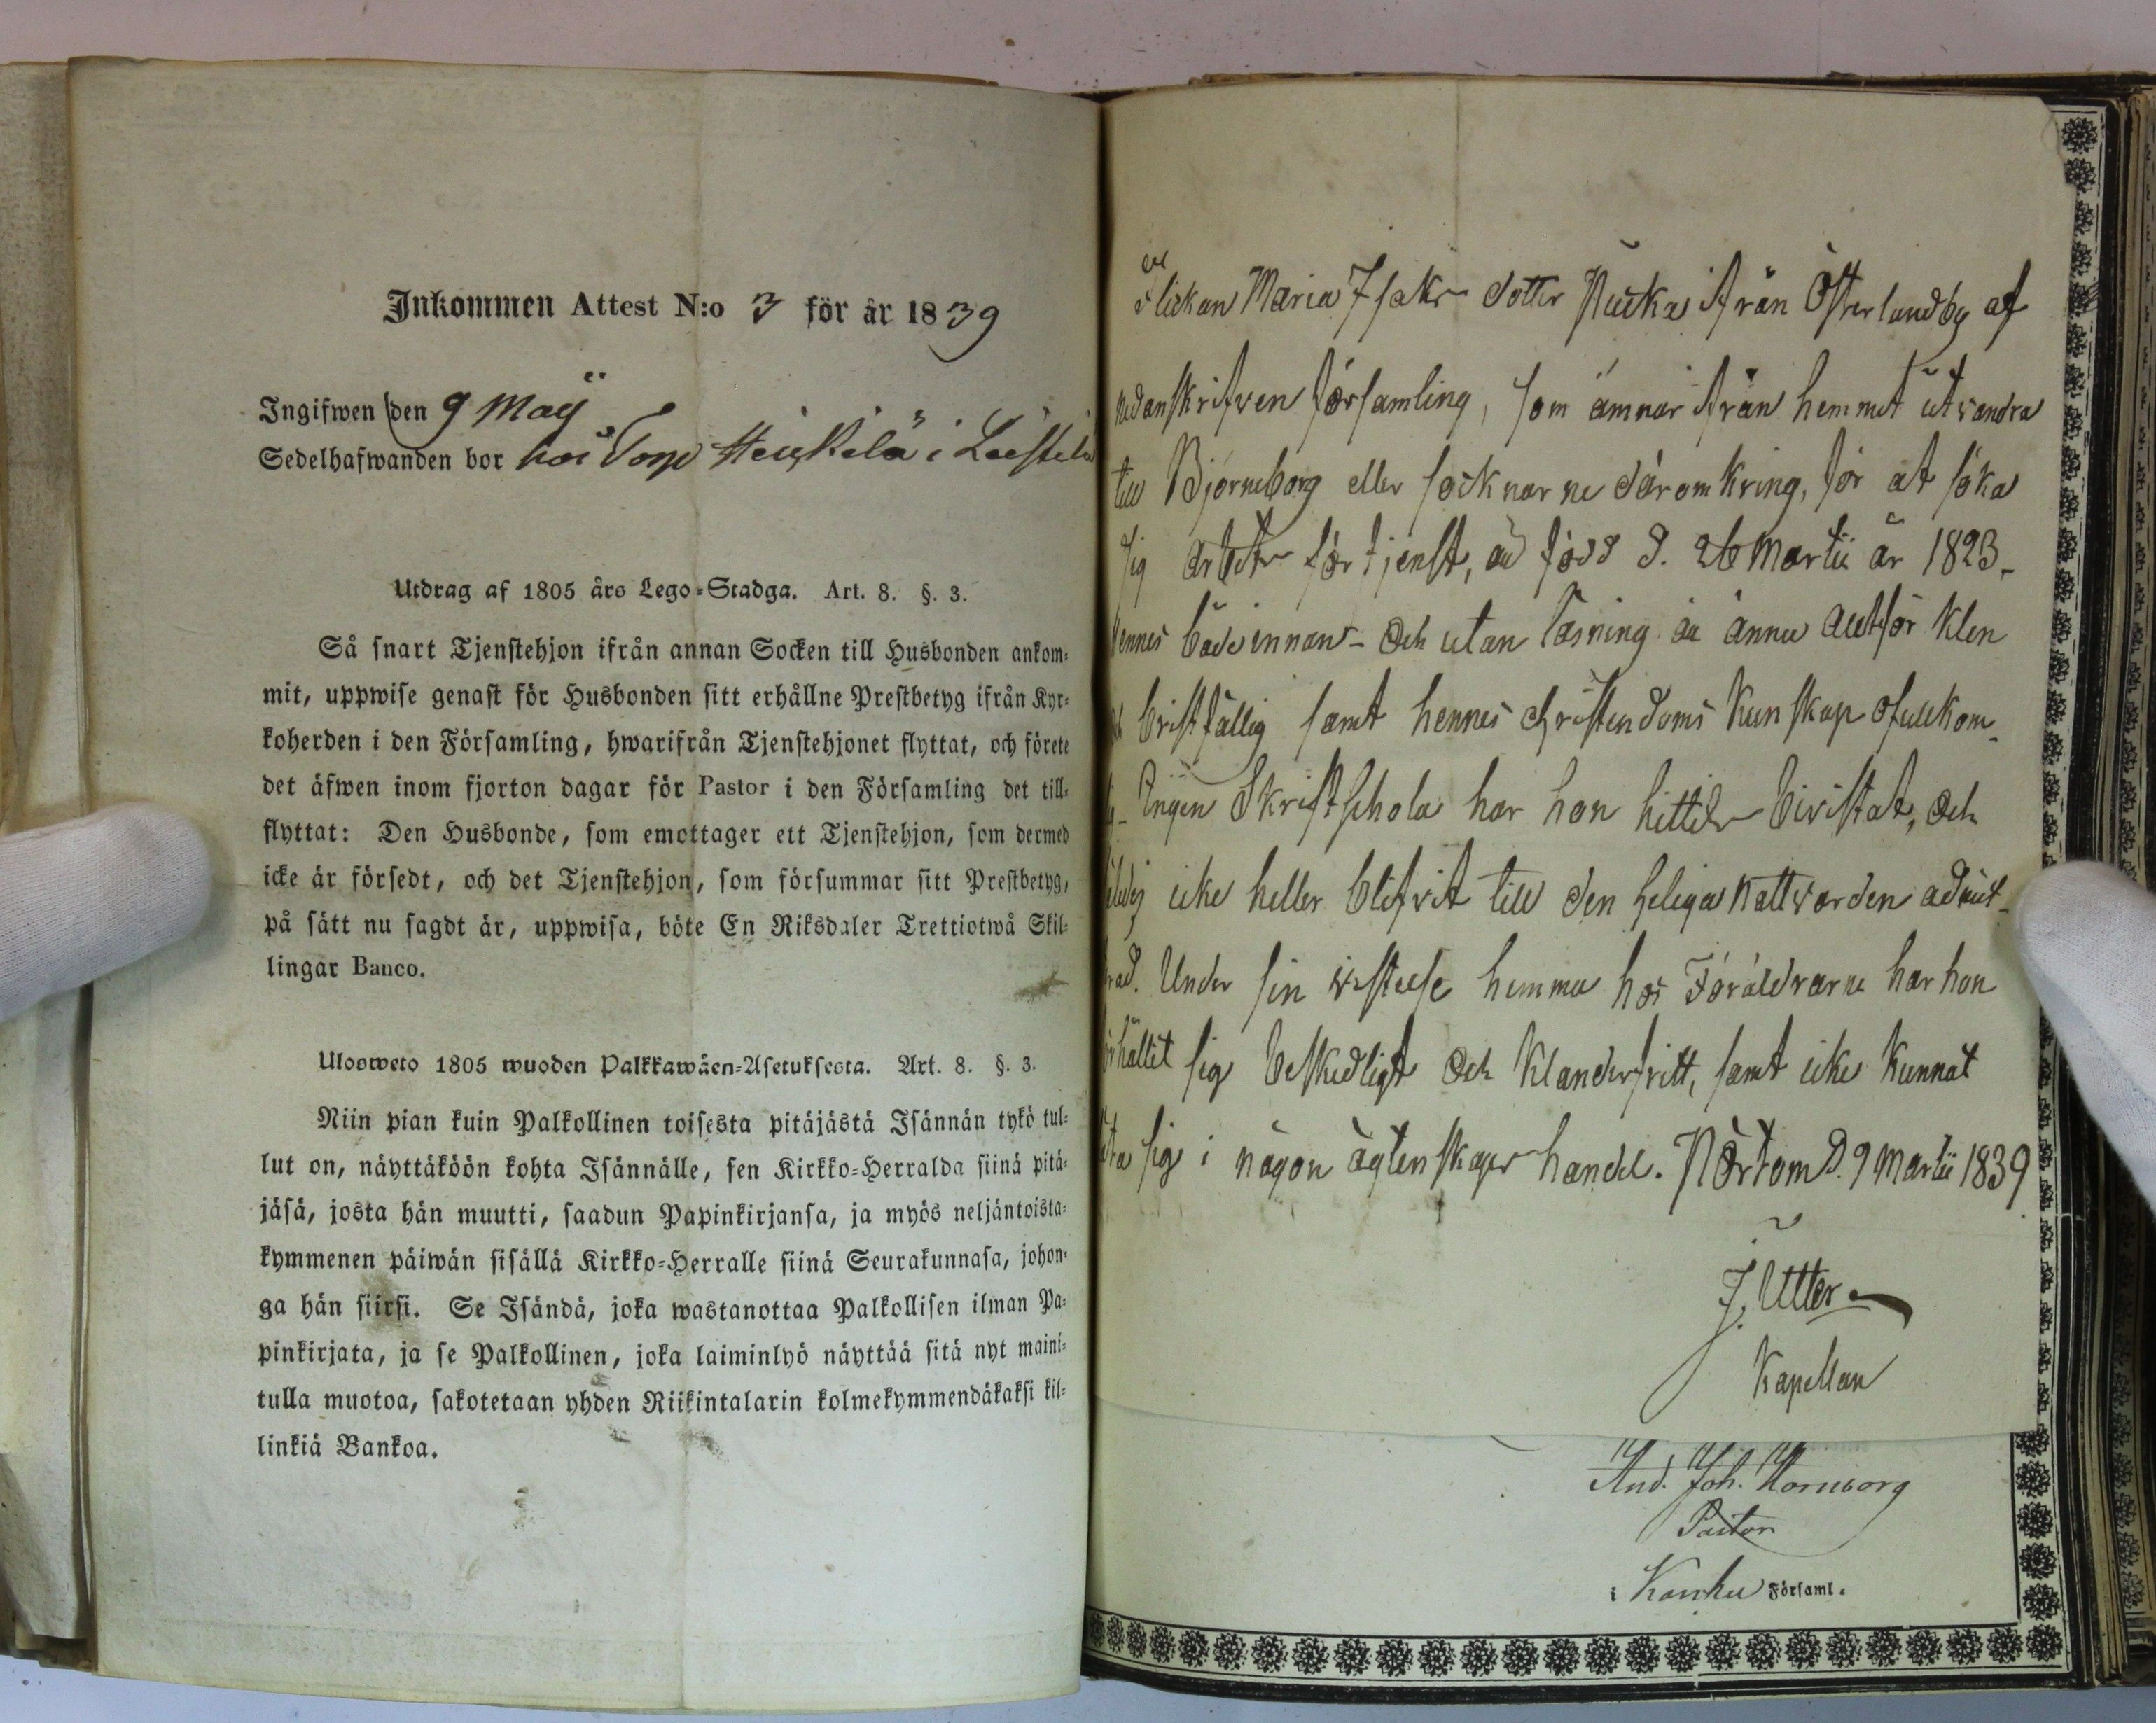 Inkommen Attest N:o 3 för år 1839
Ingifwen den 9 Maij
Sedelhafwanden bor hos Torp Heikkilä i Leistilä
Utdrag af 1805 års Lego-Stadga. Art. 8. §. 3.
Så snart Tjenstehjon ifrån annan Socken till Husbonden ankom-
mit, uppwise genast för Husbonden sitt erhållne Prestbetyg ifrån Kyr-
koherden i den Församling, hwarifrån Tjenstehjonet flyttat, och förete
det äfwen inom fjorton dagar för Pastor i den Församling det till-
flyttat: Den Husbonde, som emottager ett Tjenstehjon, som dermed
icke är försedt, och det Tjenstehjon, som försummar sitt Prestbetyg,
på sätt nu sagdt är, uppwisa, böte En Riksdaler Trettiotwå Skil-
lingar Banco.
Ulosweto 1805 wuoden Palkkawäen-Asetuksesta. Art. 8. §. 3.
Niin pian kuin Palkollinen toisesta pitäjästä Isännän tykö tul-
lut on, näyttäköön kohta Isännälle, sen Kirkko-Herralda siinä pitä-
jäsä, josta hän muutti, saadun Papinkirjansa, ja myös neljäntoista-
kymmenen päiwän sisällä Kirkko-Herralle siinä Seurakunnasa, johon-
ga hän siirsi. Se Isändä, joka wastanottaa Palkollisen ilman Pa-
pinkirjata, ja se Palkollinen, joka laiminlyö näyttää sitä nyt maini-
tulla muotoa, sakotetaan yhden Riikintalarin kolmekymmendäkaksi kil-
linkiä Bankoa.
Flickan Maria Isaks dotter ifrån Österlandby af
nedanskrifven församling, som ämnar ifrån hemmet utvandra
till Björneborg eller socknarne däromkring, för at söka
sig arbets förtjenst, är född d. 26 Martii år 1823.
Hennes både innan- och utan läsning är ännu alltför klen
och bristfällig samt hennes christendoms kunskap ofullkom-
lig. Ingen Skriftschola har hon hittils bivistat, och
således icke heller blifvit till den heliga nattvarden admit-
terad. Under sin vistelse hemma hos Föräldrarne har hon
förhållit sig beskedligt och klanderfritt, samt icke kunnat
sig i någon ägtenskaps handel. Närtom d. 9 Martii 1839
J. Utter
Kapellan
And. Joh. Hornborg
Pastor
i Kauhu Församl.